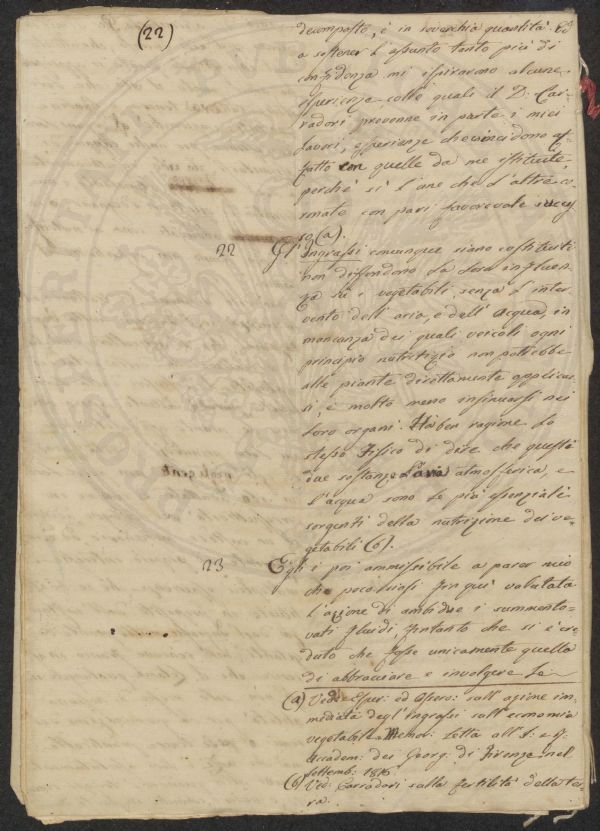 (22)
decomposto, è in soverchia quantità. Ed
a sostener l'assunto tanto più di
confidenza mi ispirarono alcune
esperienze colle quali il D. Car-
radori prevenne in parte i miei
lavori, esperienze che coincidono af-
fatto con quelle da me istituite,
perchè sì l'une che l'altre
con pari favorevole succes-
so (a).
22 Gl'Ingrassi comunque siano costituiti
non diffondono la loro influen-
za sù i vegetabili, senza l'inter-
vento dell'aria, e dell'Acqua, in
mancanza dei quali veicoli ogni
principio nutritizio non potrebbe
alle piante direttamente applicar-
si, e molto meno insinuarsi nei
loro organi. Ha ben ragione lo
stesso Fisico di dire che queste
due sostanze l'aria atmosferica, e
l'acqua sono le più essenziali
sorgenti della nutrizione dei ve-
getabili (b).
23 Egli è poi ammissibile a parer mio
che poco siasi fin quì valutata
l'azione di ambidue i summento-
vati fluidi, fintanto che si è cre-
duto che fosse unicamente quella
di abbracciare e involgere le
(a) Vedi Esper: ed Osserv: sull'azione im-
mediata degl'ingrassi sull'economia
vegetabile. Memor: Letta all'I. e R.
Accadem: dei Georg. di Firenze nel
settemb: 1815.
(b) Ved: Carradori sulla fertilità della ter-
ra.